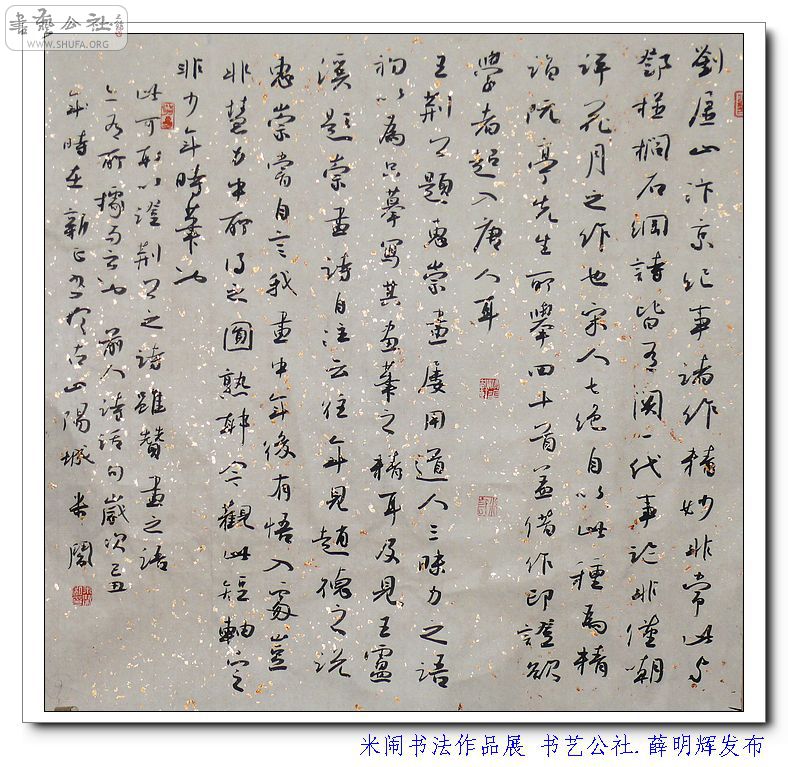 劉屏山汴京纪事诸作精妙非常此与
鄧栟榈石纲詩皆有関一代事论非僅嘲
评花月之作也宋人七绝自以此種為精
诣阮亭先生所舉四十首盖借作印證欲
學者超入唐人耳
王荆公題惠崇畫屡用道人三昧力之語
初以為只摹寫其畫筆之精耳及見王盧
溪題崇畫詩自注云往年見趙德之说
惠崇嘗自言我畫中年後有悟入處豈
非慧力中所得之圓熟邪今觀此短軸定
非少年時筆也
此可取以證荆公之詩雖贊畫之語
亦有所據而云也 前人詩話句歲次己丑
年時在新正書於古山陽城 米闹
書藝公社
WWW.SHUFA.ORG
米闹书法作品展 书艺公社.薛明辉发布